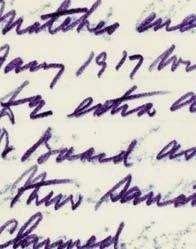 Matches end
Jany 1917 
for extra a
Board as
their Sanc
Claimed